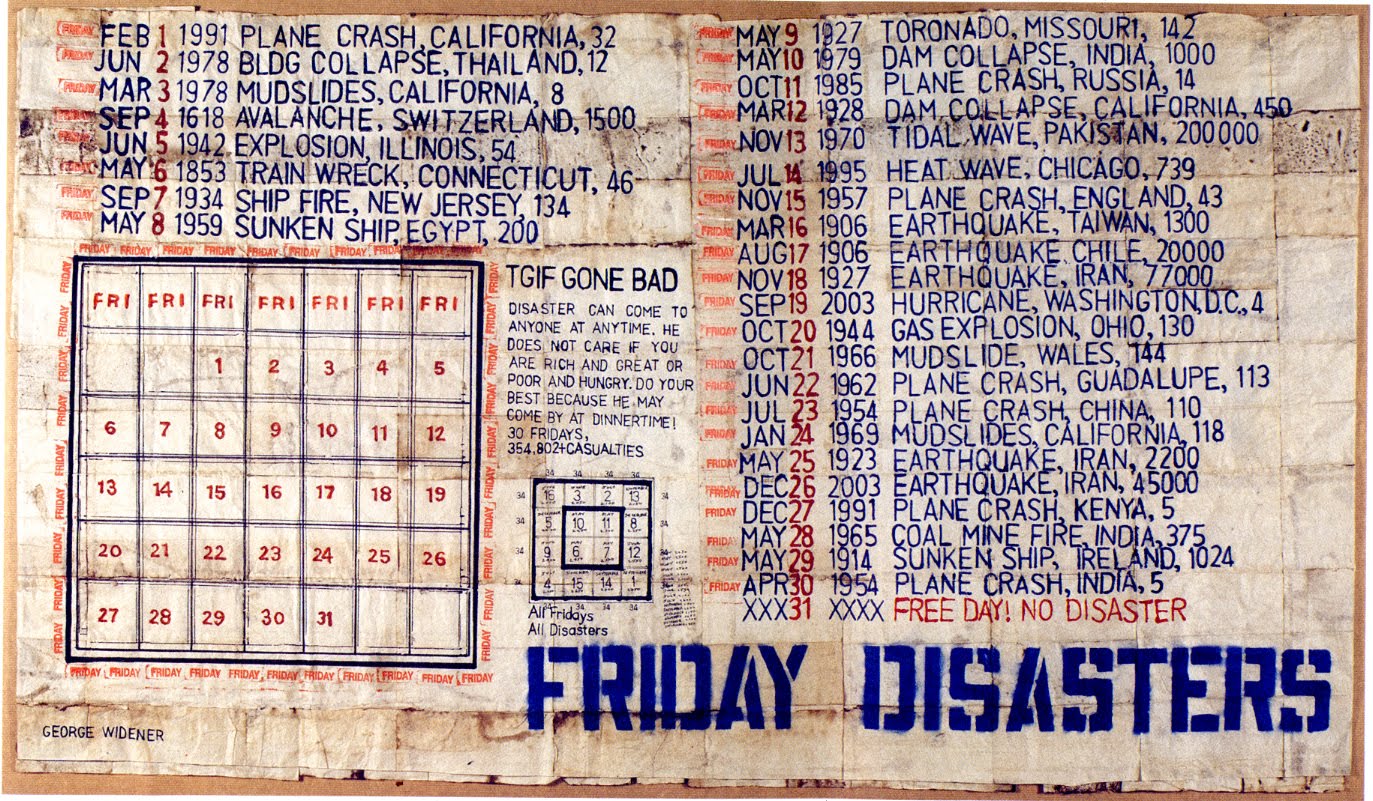 FRIDAY FEB 1 1991 PLANE CRASH, CALIFORNIA, 32
FRIDAY JUN 2 1978 BLDG COLLAPSE, THAILAND, 12
FRIDAY MAR 3 1978 MUDSLIDES, CALIFORNIA, 8
FRIDAY SEP 4 1618 AVALANCHE, SWITZERLAND, 1500
FRIDAY JUN 5 1942 EXPLOSION, ILLINOIS, 54
FRIDAY MAY 6 1853 TRAIN WRECK, CONNECTICUT, 46
FRIDAY SEP 7 1934 SHIP FIRE, NEW JERSEY, 134
FRIDAY MAY 8 1959 SUNKEN SHIP, EGYPT, 200
FRIDAY FRIDAY FRIDAY FRIDAY FRIDAY FRIDAY FRIDAY FRIDAY
FRI FRI FRI FRI FRI FRI FRI
1 2 3 4 5
6 7 8 9 10 11 12
13 14 15 16 17 18 19
20 21 22 23 24 25 26
27 28 29 30 31
FRIDAY FRIDAY FRIDAY FRIDAY FRIDAY FRIDAY FRIDAY FRIDAY FRIDAY FRIDAY FRIDAY
GEORGE WIDENER
TGIF GONE BAD
DISASTER CAN COME TO
ANYONE AT ANYTIME. HE
DOES NOT CARE IF YOU
ARE RICH AND GREAT OR
POOR AND HUNGRY. DO YOUR
BEST BECAUSE HE MAY
COME BY AT DINNERTIME!
30 FRIDAYS,
354,802+CASUALTIES
34 34 34 34
34 16 3 2 13 34
34 5 10 11 8 34
34 9 6 7 12 34
34 4 15 14 1 34
34 34 34 34
All Fridays
All Disasters
FRIDAY MAY 9 1927 TORONADO, MISSOURI, 142
FRIDAY MAY 10 1979 DAM COLLAPSE, INDIA, 1000
FRIDAY OCT 11 1985 PLANE CRASH, RUSSIA, 14
FRIDAY MAR 12 1928 DAM COLLAPSE, CALIFORNIA, 450
FRIDAY NOV 13 1970 TIDAL WAVE, PAKISTAN, 200000
FRIDAY JUL 14 1995 HEAT WAVE, CHICAGO, 739
FRIDAY NOV 15 1957 PLANE CRASH, ENGLAND, 43
FRIDAY MAR 16 1906 EARTHQUAKE, TAIWAN, 1300
FRIDAY AUG 17 1906 EARTHQUAKE, CHILE, 20000
FRIDAY NOV 18 1927 EARTHQUAKE, IRAN, 77000
FRIDAY SEP 19 2003 HURRICANE, WASHINGTON, D.C., 4
FRIDAY OCT 20 1944 GAS EXPLOSION, OHIO, 130
FRIDAY OCT 21 1966 MUDSLIDE, WALES, 144
FRIDAY JUN 22 1962 PLANE CRASH, GUADALUPE, 113
FRIDAY JUL 23 1954 PLANE CRASH, CHINA, 110
FRIDAY JAN 24 1969 MUDSLIDES, CALIFORNIA, 118
FRIDAY MAY 25 1923 EARTHQUAKE, IRAN, 2200
FRIDAY DEC 26 2003 EARTHQUAKE, IRAN, 45000
FRIDAY DEC 27 1991 PLANE CRASH, KENYA, 5
FRIDAY MAY 28 1965 COAL MINE FIRE, INDIA, 375
FRIDAY MAY 29 1914 SUNKEN SHIP, IRELAND, 1024
FRIDAY APR 30 1954 PLANE CRASH, INDIA, 5
XXX 31 XXXX FREE DAY! NO DISASTER
FRIDAY DISASTERS